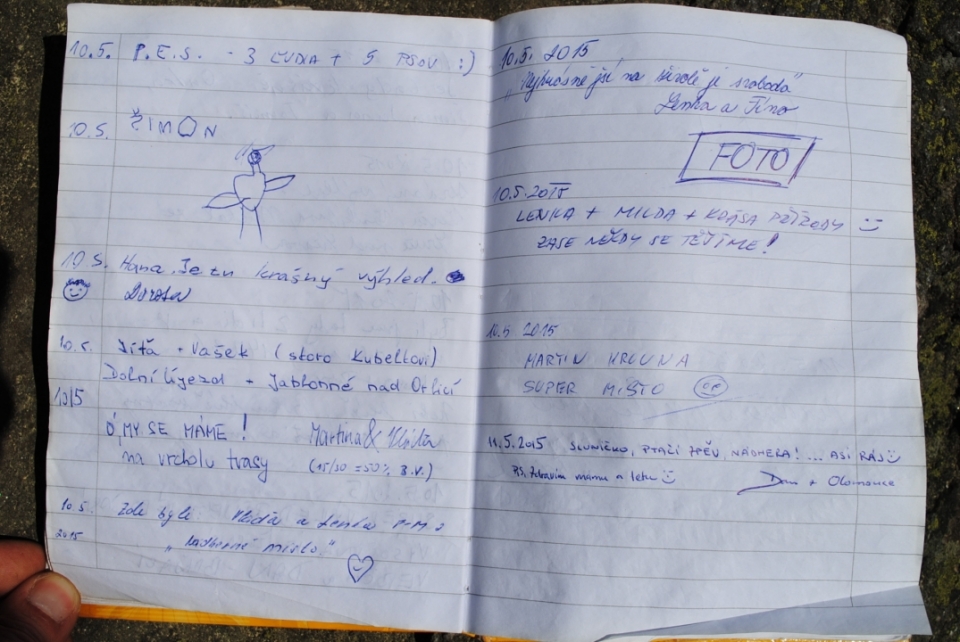 10.5. P.E.S. - 3 ĽUDIA + 5 PSOV :)
10.5. ŠIMON
10.5. Hana. Je tu krásný výhled.
10.5. Jíťa + Vašek (skoro Kubelkovi)
Dolní Újezd + Jablonné nad Orlicí
10/5
Ó, MY SE MÁME! Martina &
na vrcholu trasy (15/30 = 50% B.V.)
10.5. Zde byli a Lenka
2015 „Nádherné místo."
10.5. 2015
„Nejkrásnější na světě je svoboda"
Lenka a
FOTO
10.5.2015
LENKA + MILDA + KRÁSA PŘÍRODY
ZASE NĚKDY SE TĚŠÍME!
10.5 2015
MARTIN HRUNA
SUPER MÍSTO
11.5.2015 SLUNÍČKO, PTAČÍ ZPĚV, NÁDHERA! ... ASI RÁJ
P.S. Zdravím mámu a
Dan z Olomouce